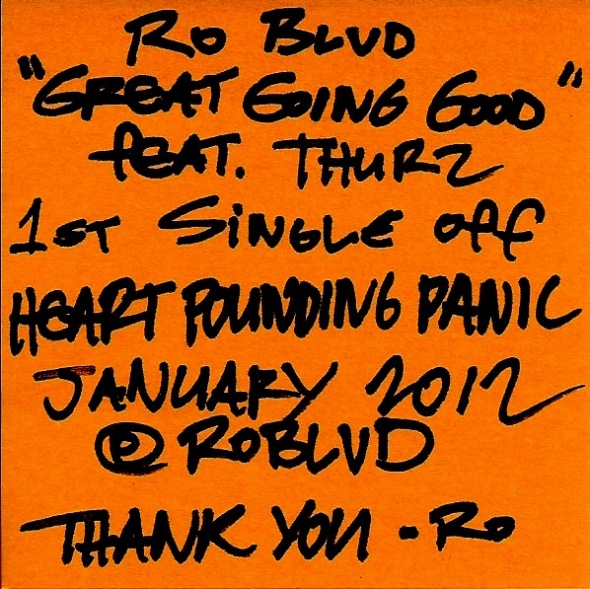 RO BLVD
"GREAT GOING GOOD"
feAT. THURZ
1ST SiNGLE off
HEART POUNDING PANIC
JANUARY 2012
@ROBLVD
THANK YOU - RO